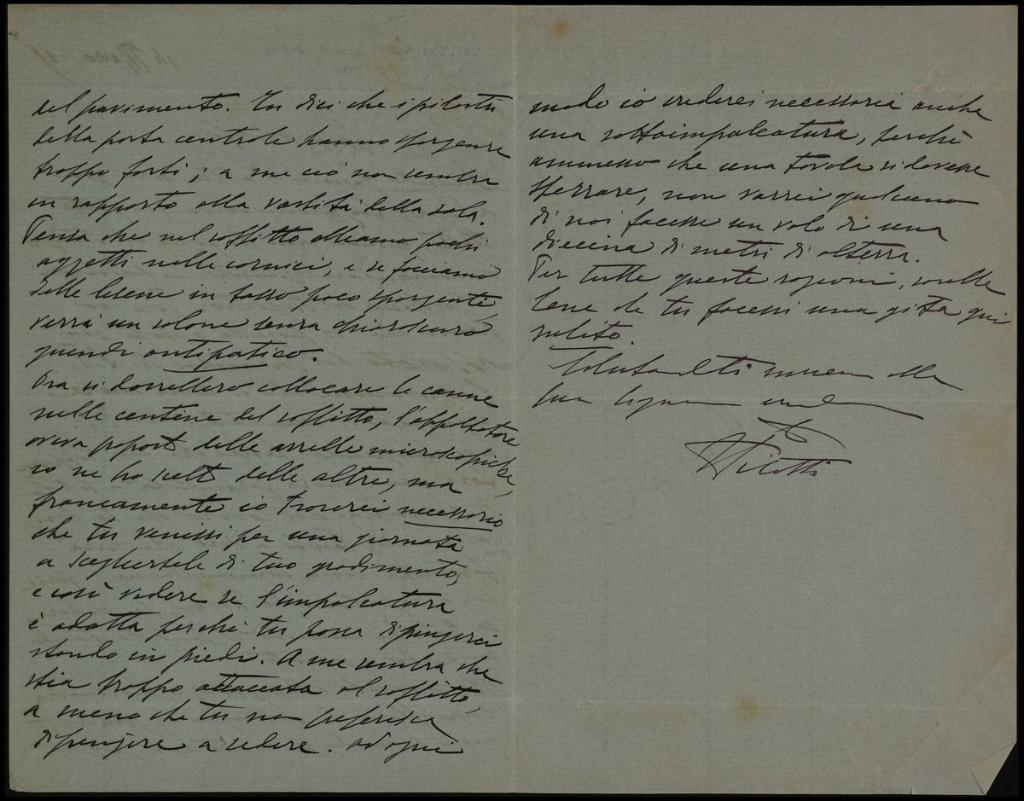 del pavimento. Tu dici che i pilastri
della porta centrale hanno sporgenze
troppo forti; a me ciò non sembra
in rapporto alla vastità della sala.
Pensa che nel soffitto abbiamo pochi
aggetti nelle cornici, e se facciamo
delle lesene in basso poco sporgenti,
verrà un salone senza chiaroscuro
quindi antipatico.
Ora si dovrebbero collocare le canne
nelle centine del soffitto, l'appaltatore
aveva proposto delle asselle microscopiche,
io ne ho scelte delle altre, ma
francamente io troverei necessario
che tu venissi per una giornata
a sceglierle di tuo gradimento,
e così vedere se l'impalcatura
è adatta perché tu possa dipingerci
stando in piedi. A me sembra che
stia troppo attaccata al soffitto,
a meno che tu non preferisca
dipingere a sedere. Ad ogni
modo io crederei necessaria anche
una sottoimpalcatura, perché
ammesso che una tavola si dovesse
sferrare, non vorrei qualcuno
di noi facesse un volo di una
diecina di metri di altezza.
Per tutte queste ragioni, sarebbe
bene che tu facessi una gita qui
subito.
alla
tua Signora